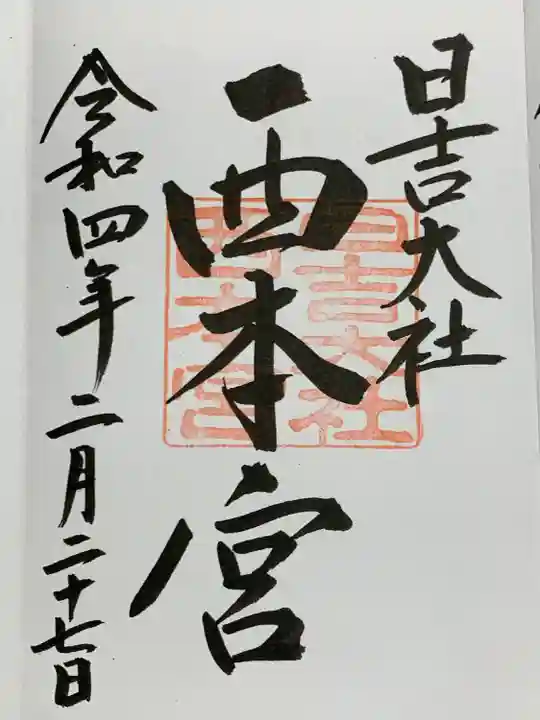 日吉大社
西本宮
日吉大社
西本宮
令和四年二月二十七日